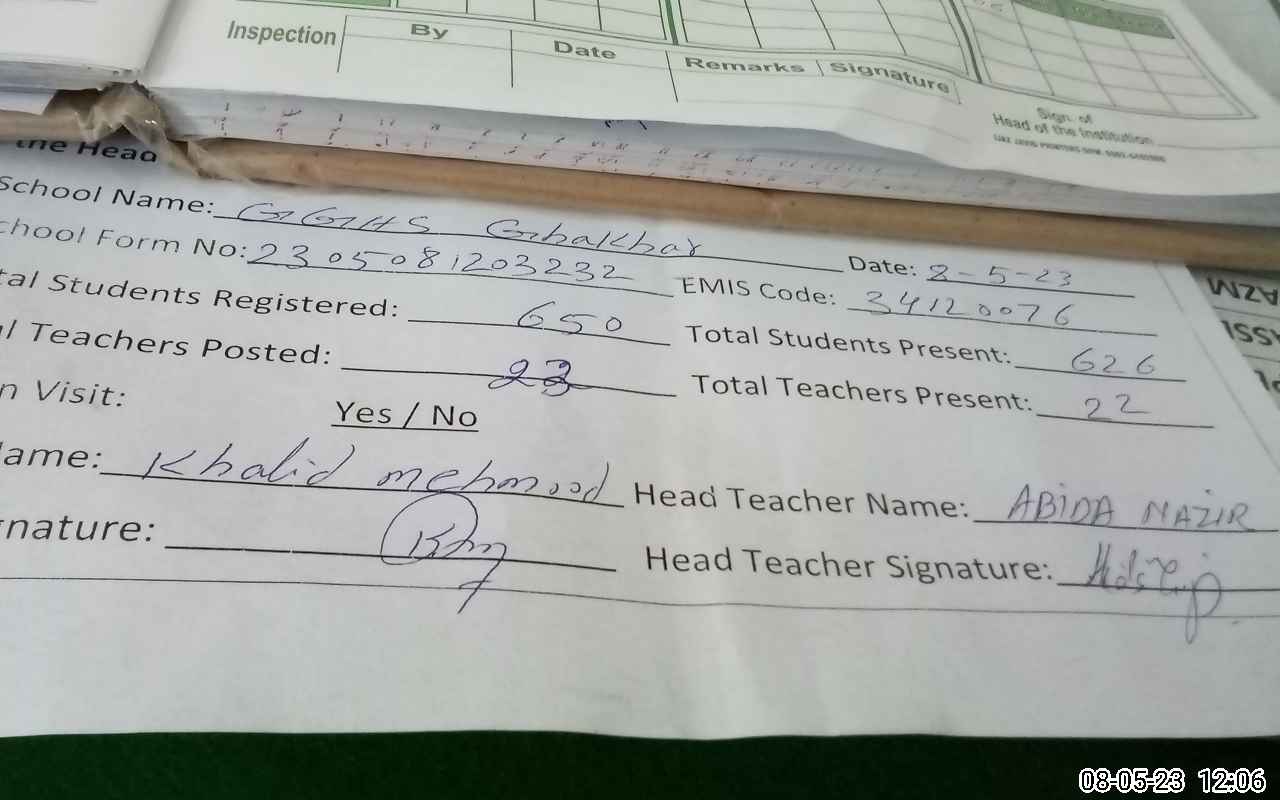 Inspection By Date Remarks Signature
Sign. of
Head of the Institution
the Head
School Name: GGHS Ghakhar
chool Form No: 2305081203232 Date: 8-5-23
tal Students Registered: 650 EMIS Code: 34120076
l Teachers Posted: 23 Total Students Present: 626
n Visit: Yes / No Total Teachers Present: 22
ame: Khalid mehmood Head Teacher Name: ABIDA NAZIR
nature: Head Teacher Signature:
AZM
08-05-23 12:06